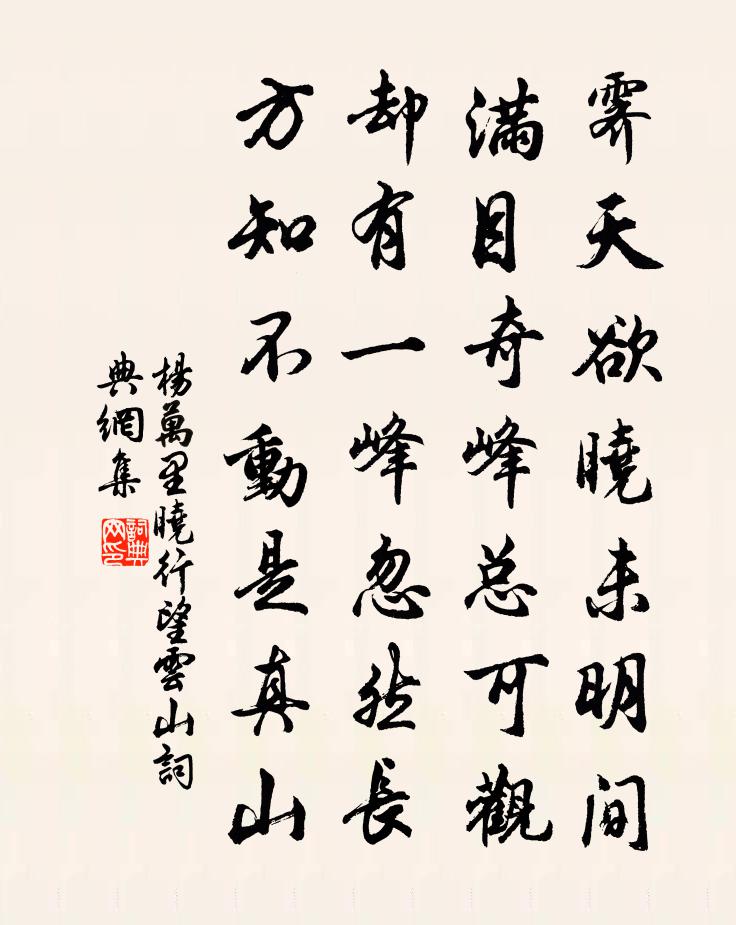 霁天欲曉未明间
满目奇峰总可觀
却有一峰忽然長
方知不動是真山
楊萬里曉行望雲山詞
典網集
詞典网印